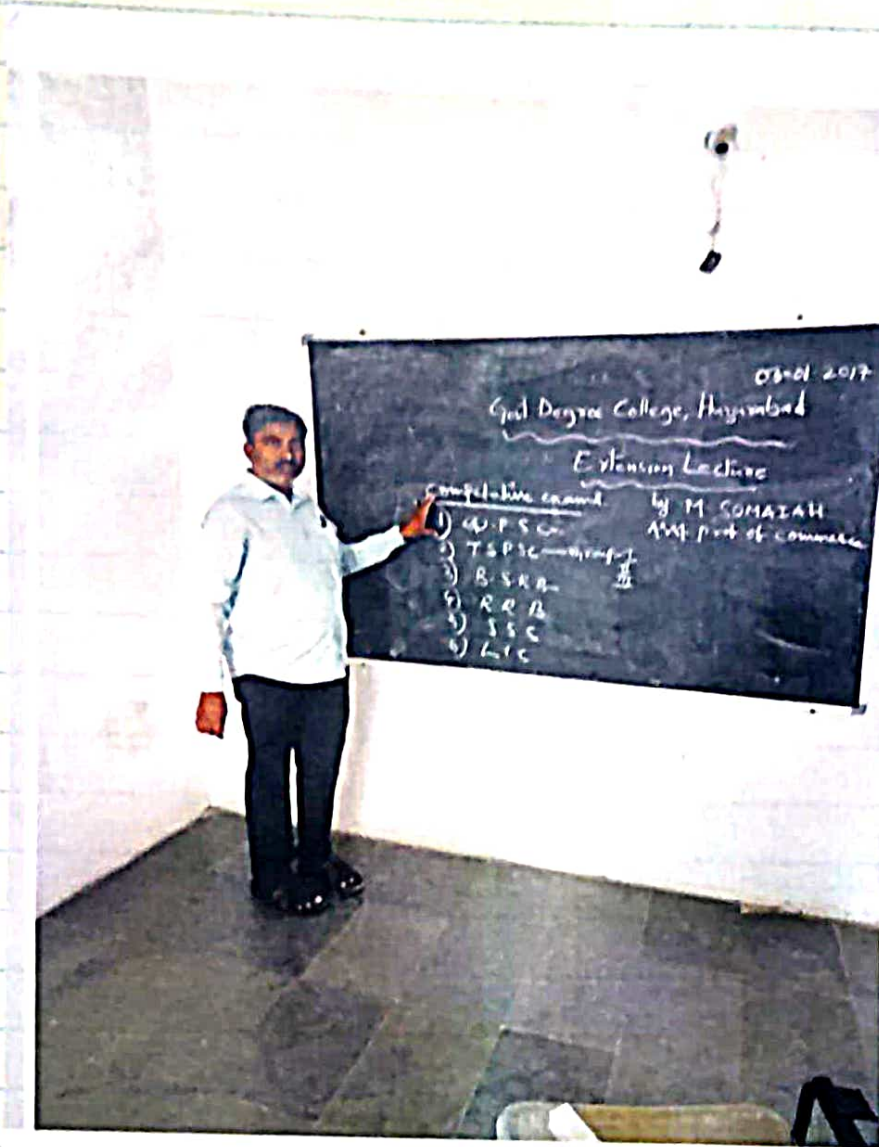 03-01 2017
Govt Degree College, Hayirabad
Extension Lecture
by M SOMAIAH
Asst prof of commerce
Competative exams
1) U.P S C
2) T S P S C — Group-I
II
3) B S R B
4) R R B
5) S S C
6) L I C